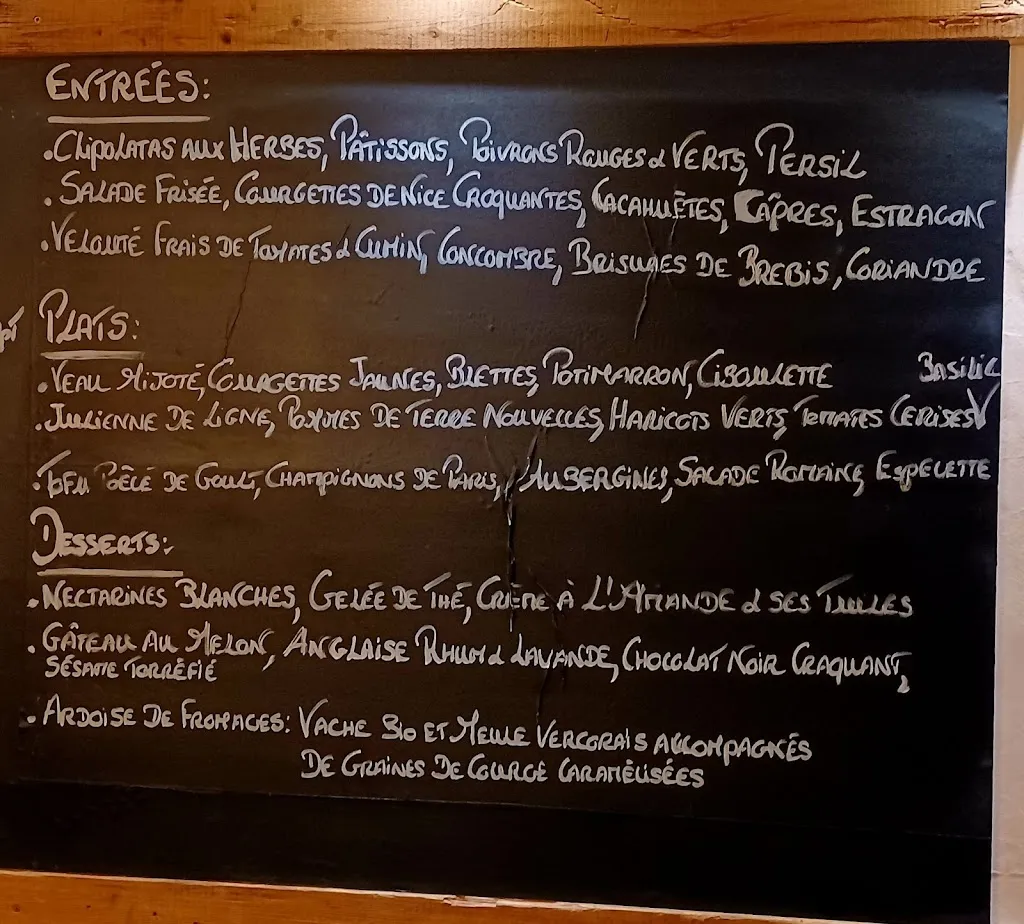 ENTRÉES:
.CHIPOLATAS AUX HERBES, PÂTISSONS, POIVRONS ROUGES & VERTS, PERSIL
.SALADE FRISÉE, COURGETTES DE NICE CROQUANTES, CACAHUÈTES, CÂPRES, ESTRAGON
.VELOUTÉ FRAIS DE TOMATES & CUMIN, CONCOMBRE, BRISURES DE BREBIS, CORIANDRE
PLATS:
.VEAU MIJOTÉ, COURGETTES JAUNES, BLETTES, POTIMARRON, CIBOULETTE
BASILIC
.JULIENNE DE LIGNE, POMMES DE TERRE NOUVELLES, HARICOTS VERTS, TOMATES CERISES
.TOFU DE GOULT, CHAMPIGNONS DE PARIS, AUBERGINES, SALADE ROMAINE, ESPELETTE
DESSERTS:
.NECTARINES BLANCHES, GELÉE DE THÉ, CRÈME À L'AMANDE & SES TUILES
.GÂTEAU AU MELON, ANGLAISE RHUM & LAVANDE, CHOCOLAT NOIR CRAQUANT,
SÉSAME TORRÉFIÉ
.ARDOISE DE FROMAGES: VACHE BIO ET MEULE VERCORAIS ACCOMPAGNÉS
DE GRAINES DE COURGE CARAMÉLISÉES